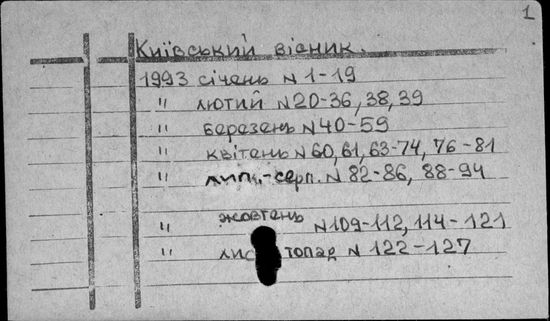 1
Київський вісник.
1993 січень N 1-19
" лютий N 20-36, 38, 39
" березень N 40-59
" квітень N 60, 61, 63-74, 76-81
" лип.-серп. N 82-86, 88-94
жовтень
" N 109-112, 114-121
" листопад N 122-127